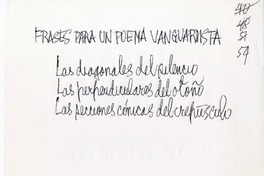 FRASES PARA UN POEMA VANGUARDISTA
Las diagonales del silencio
Las perpendiculares del otoño
Las secciones cónicas del crepúsculo
57